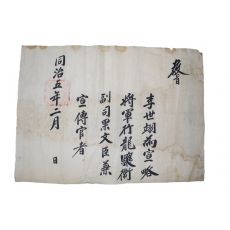 敎旨
李世翊爲宣略
將軍行龍驤衛
副司果文臣兼
宣傳官者
同治五年二月 日